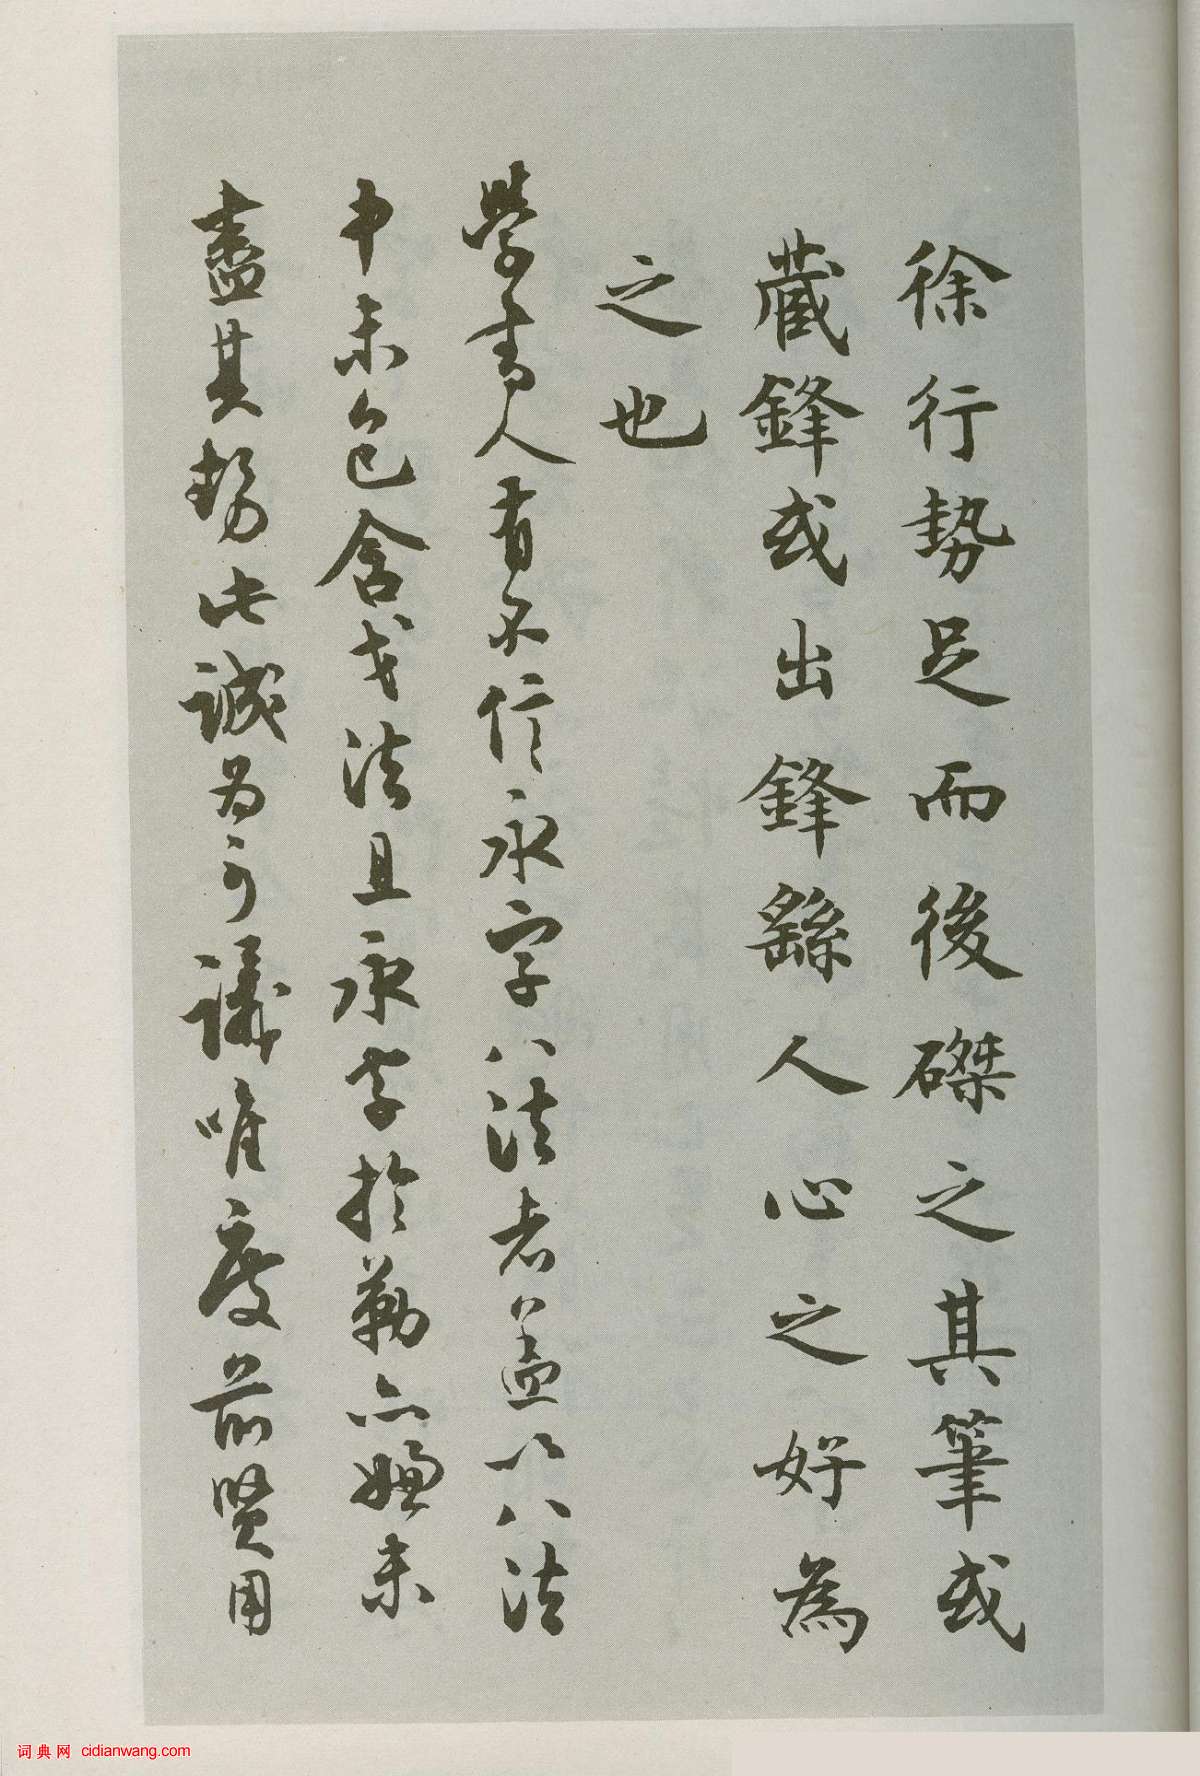 徐行勢足而後磔之其筆或
藏鋒或出鋒繇人心之好為
之也
學書人有不信永字八法者蓋以八法
中未包含戈法且永字於勒亦嫌未
盡其勢此誠為可議唯度前賢用
词典网 cidianwang.com